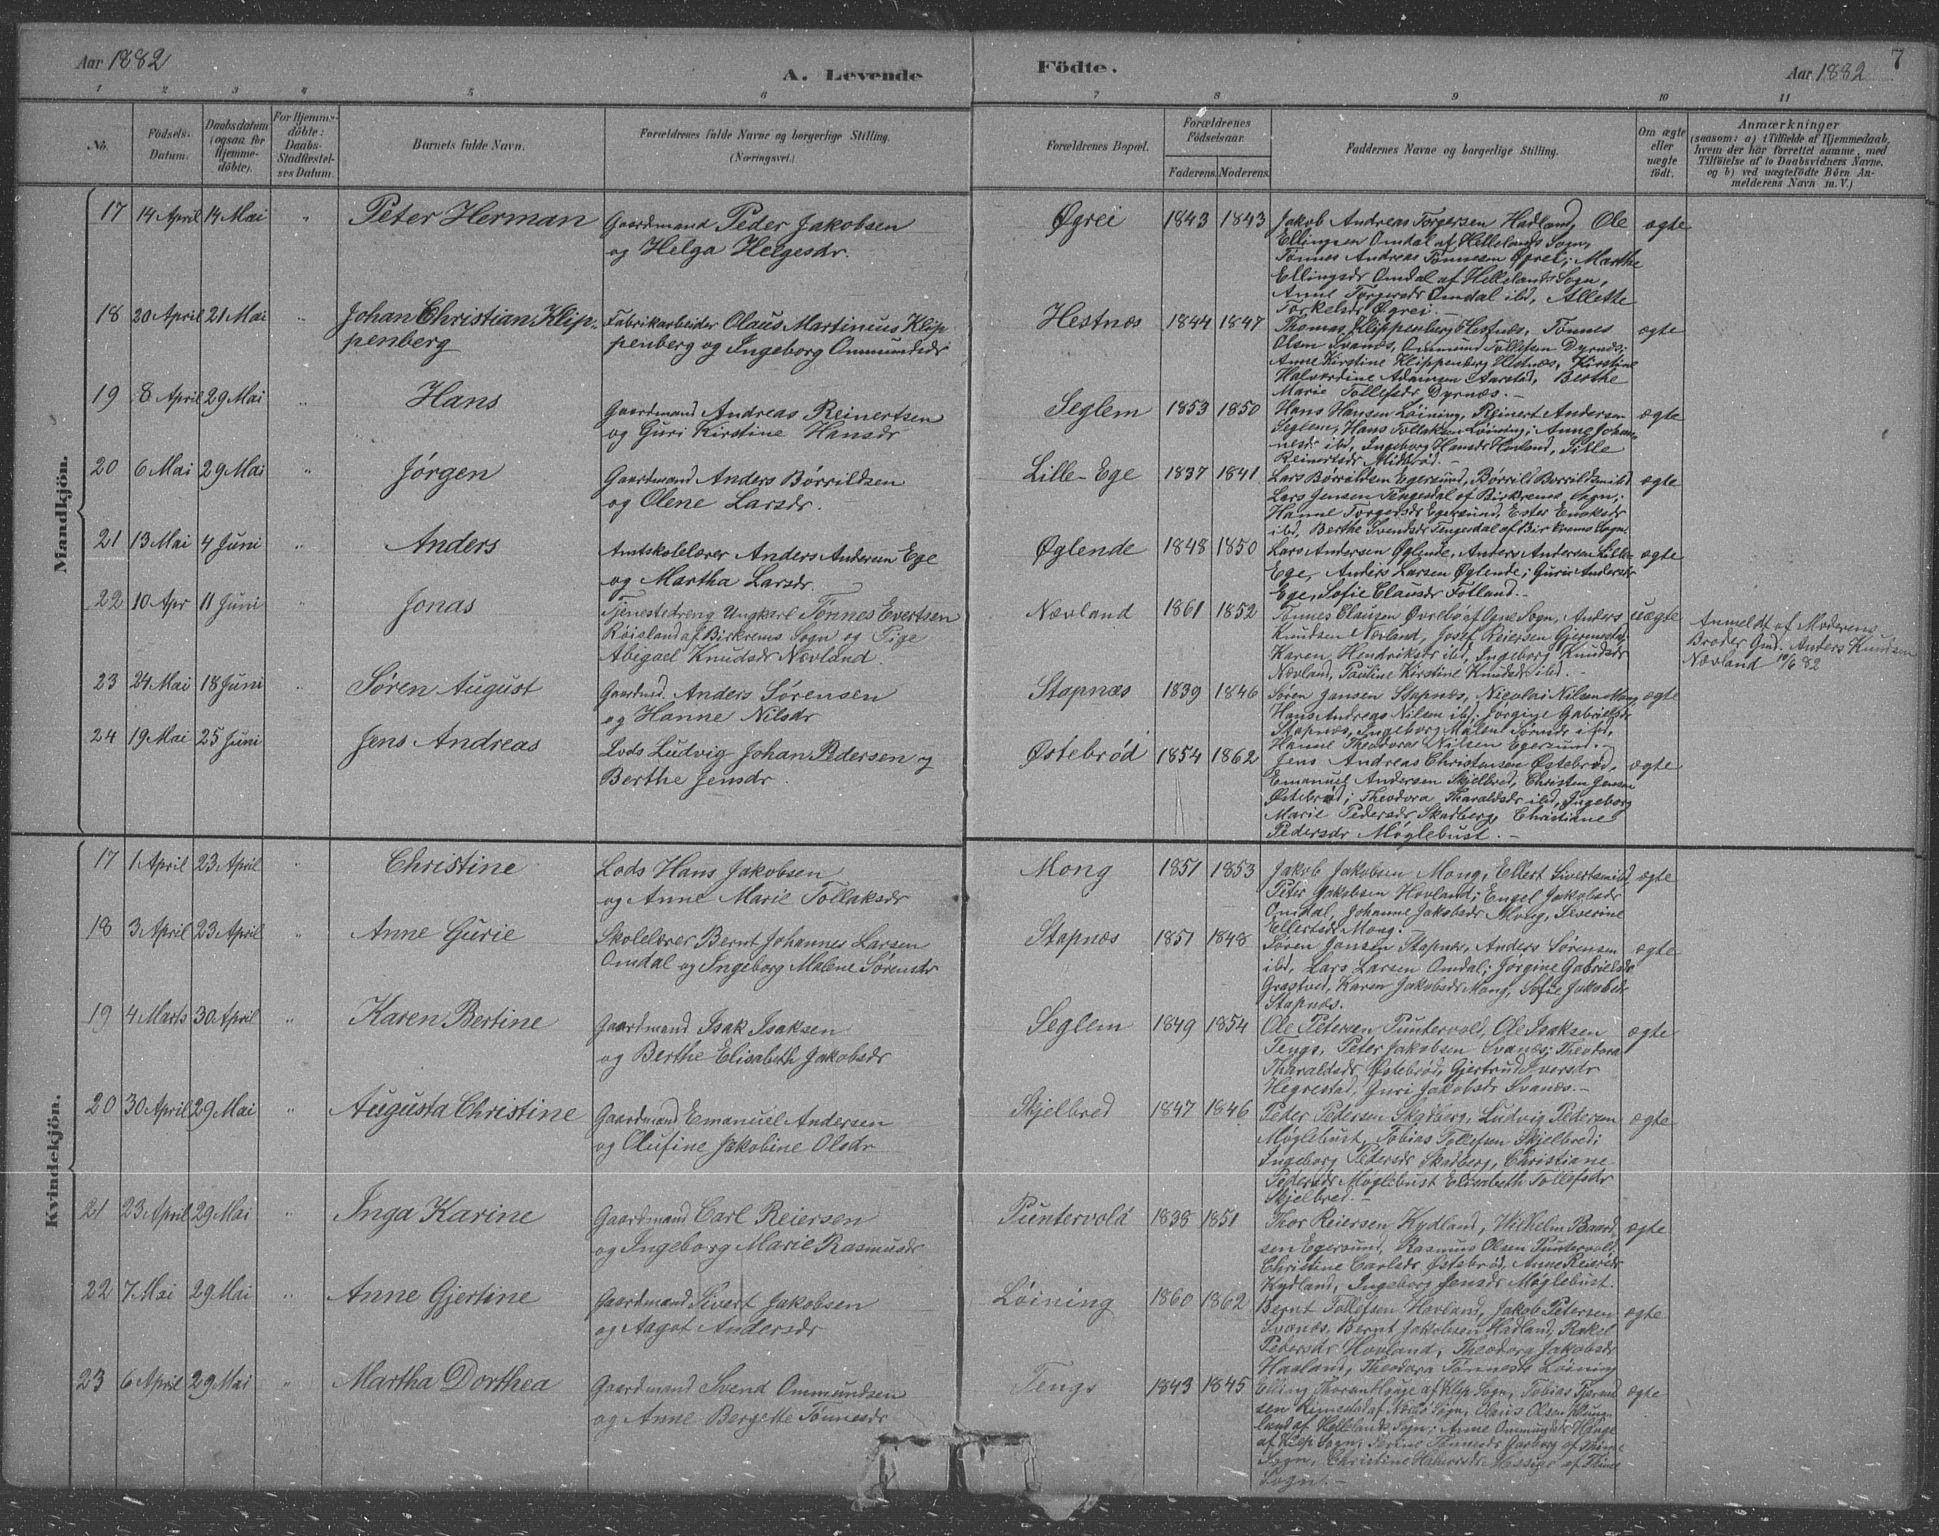 Aar 1882
A. Levende
Födte.
Aar 1882
7
1 2 3 4 5 6 7 8 9 10 11
No.
Födsels-Datum.
Daabsdatum (ogsaa for Hjemmedöbte).
For Hjemmedöbte: Daabs-Stadfæstelses Datum.
Barnets fulde Navn.
Forældrenes fulde Navne og borgerlige Stilling. (Næringsvei.)
Forældrenes Bopæl.
Forældrenes Födselsaar.
Faderens. Moderens.
Faddernes Navne og borgerlige Stilling.
Om ægte eller uægte födt.
Anmærkninger
(saasom: a) i Tilfælde af Hjemmedaab, hvem der har forrettet samme, med Tilföielse af to Daabsvidners Navne, og b) ved uægtefödte Börn Anmelderens Navn m. V.)
Mandkjön.
17 14 April 14 Mai " Peter Herman Gaardmand Peder Jakobsen
og Helga Helgesdr. Øgrei 1843 1843 Jakob Andreas Torgersen Hadland, Ole
Ellingsen Omdal af Hellelands Sogn,
Tønnes Andreas Tønnesen Øgrei; Marthe
Ellingsdr Omdal af Hellelands Sogn,
Anne Torgersdr Omdal ibd, Allette
Torkelsdr Øgrei.— ægte
18 20 April 21 Mai " Johan Christian Klip-
penberg Fabrikarbeider Olaus Martinius Klip
penberg og Ingeborg Ommundsdr Hestnæs 1844 1847 Thomas Klippenberg Hestnæs, Tønnes
Olsen Svanæs, Ommund Tollefsen Dyrnæs;
Anne Kirstine Klippenberg Hestnæs, Kirstine
Halvardine Adamsen Aarstad, Berthe
Marie Tollefsdr Dyrnæs.— ægte
19 8 April 29 Mai " Hans Gaardmand Andreas Reinertsen
og Guri Kirstine Hansdr Seglem 1853 1850 Hans Hansen Løining, Reinert Andersen
Seglem, Hans Tollaksen Løining; Anne Johan-
nesdr ibd, Ingeborg Hansdr Hovland, Sille
Reinertsdr Midbrød.— ægte
20 6 Mai 29 Mai " Jørgen Gaardmand Anders Børrildsen
og Olene Larsdr. Lille-Ege 1837 1841 Lars Børrildsen Egersund, Børrild Børrildsen ibd
Lars Jensen Tengesdal af Birkrems Sogn;
Hanne Torgersdr Egersund, Ester Enoksdr
ibd, Berthe Svendsdr Tengesdal af Birkrems Sogn ægte
21 13 Mai 4 Juni " Anders Amtskolelærer Anders Andersen Ege
og Martha Larsdr. Øglende 1848 1850 Lars Andersen Øglende, Anders Andersen Lille
Ege, Anders Larsen Øglende; Gurie Andersdr
Ege, Sofie Clausdr Fotland.— ægte
22 10 Apr 11 Juni " Jonas Tjenestedreng Ungkarl Tønnes Evertsen
Røisland af Birkrems Sogn og Pige
Abigael Knudsdr Nævland. Nævland 1861 1852 Tønnes Clausen Øvrebø af Ogne Sogn, Anders
Knudsen Nævland, Josef Reiersen Gjermestad;
Karen Hendriksdr ibd, Ingeborg Knudsdr
Nævland, Pauline Kirstine Knudsdr ibd.— uægte Anmeldt af Moderens
Broder Gmd. Anders Knudsen
Nævland 10/6 82
23 24 Mai 18 Juni " Søren August Gaardmd. Anders Sørensen
og Hanne Nilsdr Stapnæs 1839 1846 Søren Jansen Stapnæs, Nicolai Nilsen Mong,
Hans Andreas Nilsen ibd; Jørgine Gabrielsdr
Stapnæs, Ingeborg Malene Sørensdr ibd,
Hanne Theodora Nilsen Egersund.— ægte
24 19 Mai 25 Juni Jens Andreas Lods Ludvig Johan Pedersen og
Berthe Jensdr. Østebrød 1854 1862 Jens Andreas Christensen Østebrød,
Emanuel Andersen Skjelbred, Christen Jensen
Østebrød; Theodora Tharaldsdr ibd, Ingeborg
Marie Pedersdr Skadberg, Christiane
Pedersdr Møglebust.— ægte
Kvindekjön.
17 1 April 23 April " Christine Lods Hans Jakobsen
og Anne Marie Tollaksdr Mong 1851 1853 Jakob Jakobsen Mong, Ellert Sivertsen ibd,
Peter Jakobsen Hovland; Engel Jakobsdr
Omdal, Johanne Jakobsdr Mong, Severine
Ellertsdr Mong.— ægte
18 3 April 23 April " Anne Gurie Skolelærer Bernt Johannes Larsen
Omdal og Ingeborg Malene Sørensdr Stapnæs 1851 1848 Søren Jansen Stapnæs, Anders Sørensen
ibd, Lars Larsen Omdal; Jørgine Gabrielsdr
Grastved, Karen Jakobsdr Mong, Sofie Jakobsdr
Stapnæs. ægte
19 4 Marts 30 April " Karen Bertine Gaardmand Isak Isaksen
og Berthe Elisabeth Jakobsdr Seglem 1849 1854 Ole Petersen Puntervold, Ole Isaksen
Tengs, Peter Jakobsen Svanæs; Theodora
Tharaldsdr Østebrød, Gjertrud Iversdr
Hegrestad, Guri Jakobsdr Svanæs.— ægte
20 30 April 29 Mai " Augusta Christine Gaardmand Emanuel Andersen
og Olufine Jakobine Olsdr Skjelbred 1847 1846 Peder Pedersen Skadberg, Ludvig Pedersen
Møglebust, Tobias Tollefsen Skjelbred;
Ingeborg Pedersdr Skadberg, Christiane
Pedersdr Møglebust Elisabeth Tollefsdr
Skjelbred.— ægte
21 23 April 29 Mai " Inga Karine Gaardmand Carl Reiersen
og Ingeborg Marie Rasmusdr Puntervold 1838 1851 Thor Reiersen Kydland, Wilhelm Baard-
sen Egersund, Rasmus Olsen Puntervold;
Christine Carlsdr Østebrød, Anne Reiersdr
Kydland, Ingeborg Jensdr Møglebust. ægte
22 7 Mai 29 Mai " Anne Gjertine Gaardmand Sivert Jakobsen
og Aagot Andersdr Løining 1860 1862 Bernt Tollefsen Hovland, Jakob Petersen
Svanæs, Bernt Jakobsen Hadland, Rakel
Pedersdr Hovland, Theodora Jakobsdr
Haaland, Theodora Tønnesdr Løining ægte
23 6 April 29 Mai " Martha Dorthea Gaardmand Svend Ommundsen
og Anne Bergette Tønnesdr Tengs 1843 1845 Elling Hauge af Klep Sogn, Tobias
sen af Sogn, Olaus Olsen
land af Hellelands Sogn; Anne Ommundsdr Hauge
af Klep Sogn, Tønnesdr Garborg af
Sogn, Christine af Thime
Sogn.— ægte